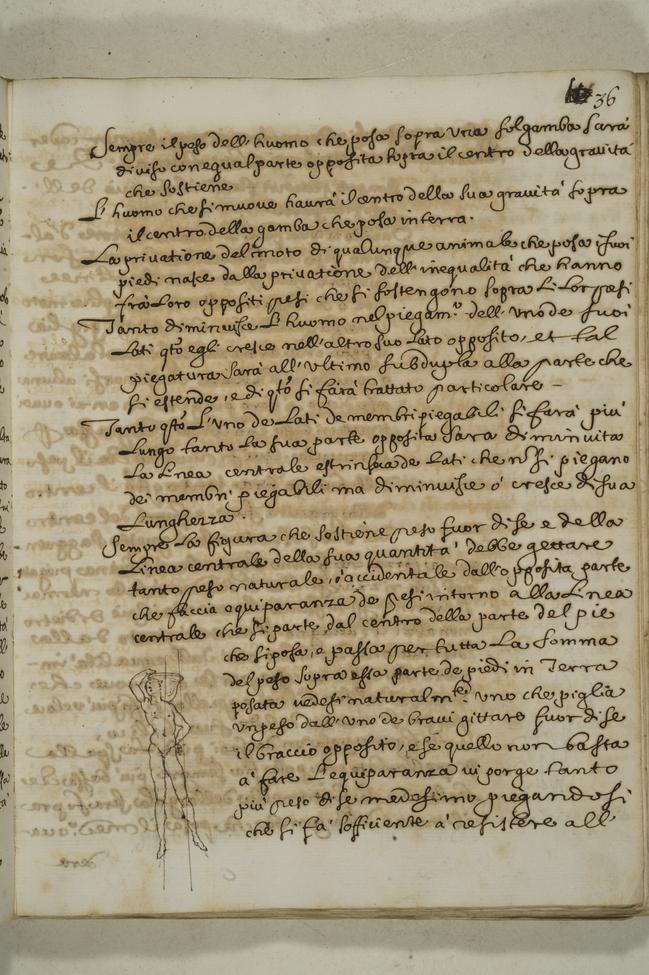 36
Sempre il peso dell'huomo che posa sopra una sol gamba sarà
diviso con equal parte opposita sopra il centro della gravità
che sostiene
L'huomo che si muove haurà il centro della sua gravità sopra
il centro della gamba che posa in terra.
La privatione del moto di qualunque animale che posa i suoi
piedi nasce dalla privatione dell'inequalità che hanno
frà loro oppositi pesi che si sostengono sopra li lor pesi
Tanto diminuisce l'huomo nel piegam.to dell'uno de suoi
lati q.to egli cresce nell'altro suo lato opposito, et tal
piegatura sarà all'ultimo subdupla alla parte che
si estende, e di q.to si farà trattato particolare –
Tanto q.to l'uno de lati de membri piegabili si farà più
lungo tanto la sua parte opposita sara diminuita
La linea centrale estrinseca de lati che no si piegano
dei membri piegabili mai diminuisce ó cresce di sua
Lunghezza.
Sempre la figura che sostiene peso fuor di se e della
linea centrale della sua quantità debbe gettare
tanto peso naturale, ó accidentale dall'opposita parte
che faccia equiparanza de pesi intorno alla linea
centrale che si parte dal centro della parte del pie
che si posa, e passa per tutta la somma
del peso sopra essa parte de piedi in Terra
posata vedesi naturalm.te uno che piglia
un peso dall'uno de bracci gittare fuor di se
il braccio opposito, e se quello non basta
à fare l'equiparanza vi porge tanto
più peso di se medesimo piegandosi
che si fà sofficiente à resistere all'